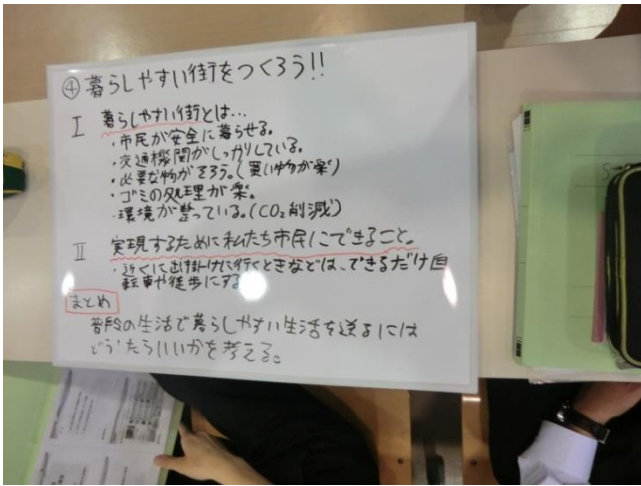 ④ 暮らしやすい街をつくろう!!
I 暮らしやすい街とは…
・市民が安全に暮らせる。
・交通機関がしっかりしている。
・必要な物がそろう。(買い物が楽)
・ゴミの処理が楽。
・環境が整っている。(CO₂削減)
II 実現するために私たち市民にできること。
・近くに出掛けに行くときなどは、できるだけ自
転車や徒歩にする
まとめ
普段の生活で暮らしやすい生活を送るには
どうしたらいいかを考える。